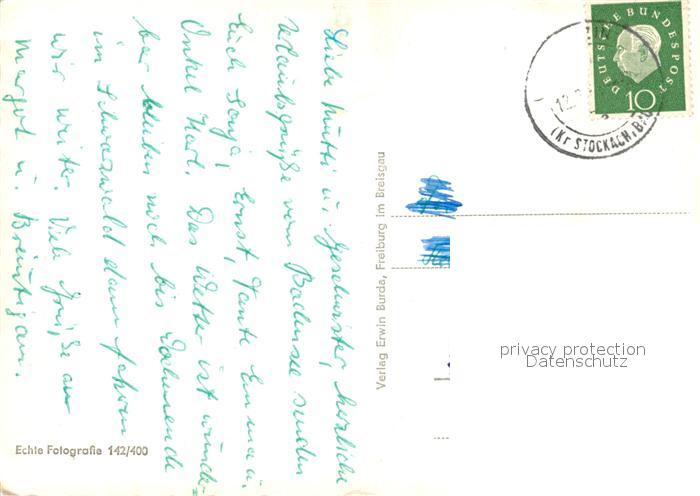 Liebe Mutti u. Geschwister, herzliche
Urlaubsgrüße vom Bodensee senden
Euch Sonja, Ernst, Tante Emma u.
Onkel Karl. Das Wetter ist wunder-
bar bleiben noch bis Wochenende
im Schwarzwald dann fahren
wir weiter. Viele Grüße an
Margot u. Bräutigam.
Echte Fotografie 142/400
Verlag Erwin Burda, Freiburg im Breisgau
DEUTSCHE BUNDESPOST
10
12.
(Kr STOCKACH, BAD
privacy protection
Datenschutz